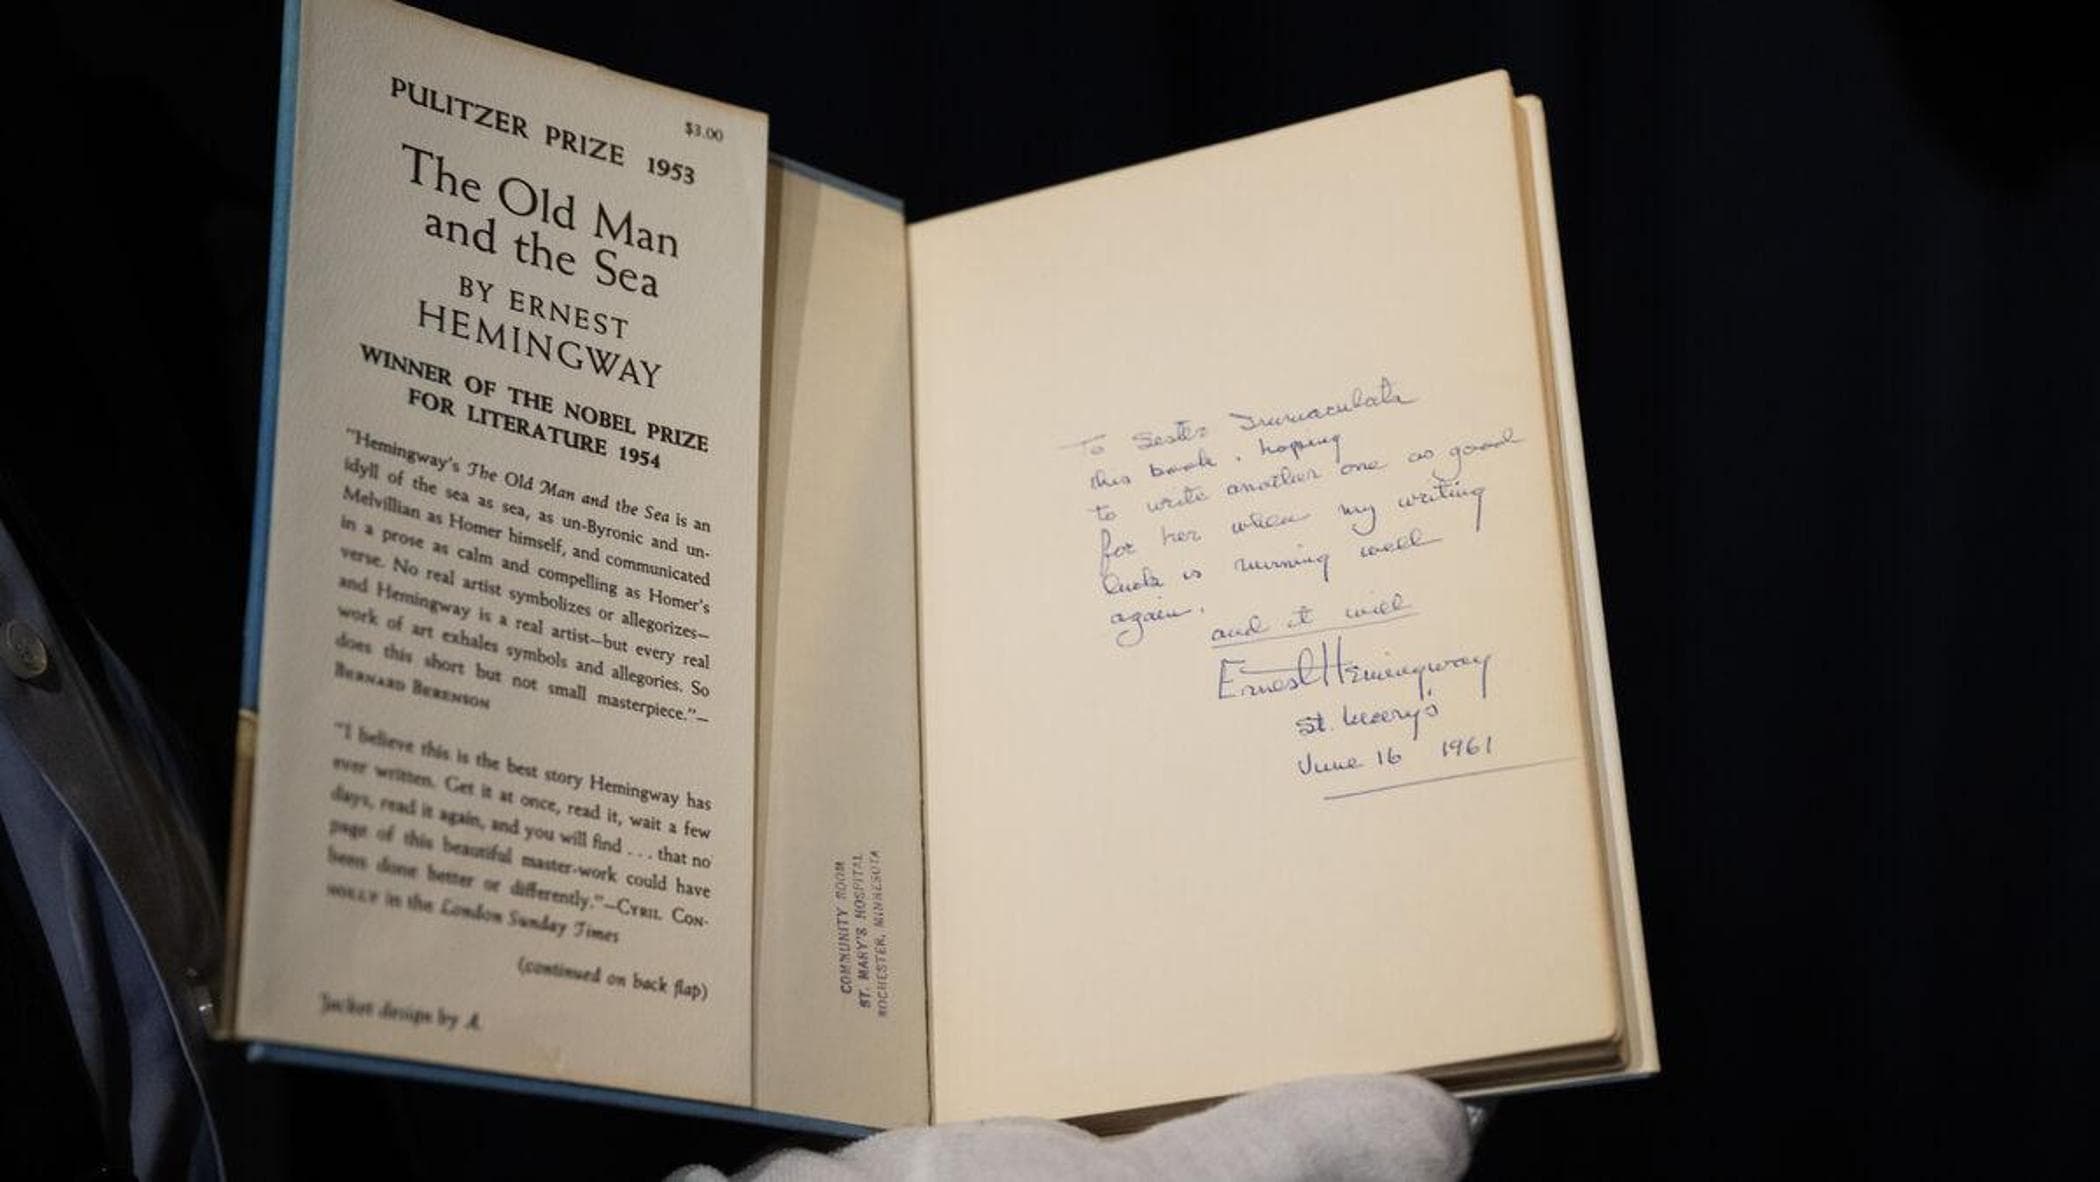 PULITZER PRIZE 1953
$3.00
The Old Man
and the Sea
BY ERNEST
HEMINGWAY
WINNER OF THE NOBEL PRIZE
FOR LITERATURE 1954
"Hemingway's The Old Man and the Sea is an
idyll of the sea as sea, as un-Byronic and un-
Melvillian as Homer himself, and communicated
in a prose as calm and compelling as Homer's
verse. No real artist symbolizes or allegorizes—
and Hemingway is a real artist—but every real
work of art exhales symbols and allegories. So
does this short but not small masterpiece."—
BERNARD BERENSON
"I believe this is the best story Hemingway has
ever written. Get it at once, read it, wait a few
days, read it again, and you will find . . . that no
page of this beautiful master-work could have
been done better or differently."—CYRIL CON-
NOLLY in the London Sunday Times
(continued on back flap)
Jacket design by A.
COMMUNITY ROOM
ST. MARY'S HOSPITAL
ROCHESTER, MINNESOTA
To Sister Immaculata
this book, hoping
to write another one as good
for her when my writing
luck is running well
again.
and it will
Ernest Hemingway
St. Mary's
June 16 1961